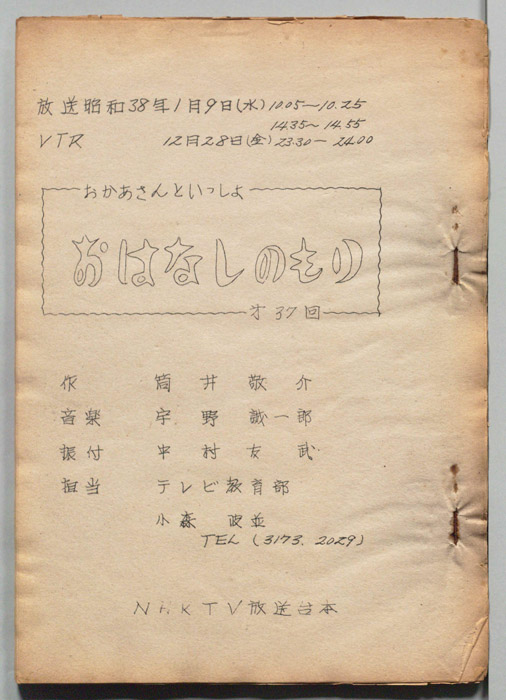 放送昭和38年1月9日(水) 10.05~10.25
14.35~14.55
VTR 12月28日(金) 23.30―24.00
おかあさんといっしよ
おはなしのもり
才37回
作 筒井敬介
音楽 宇野誠一郎
振付 中村友武
担当 テレビ教育部
小森 政並
TEL (3173. 2029)
NHKTV放送台本